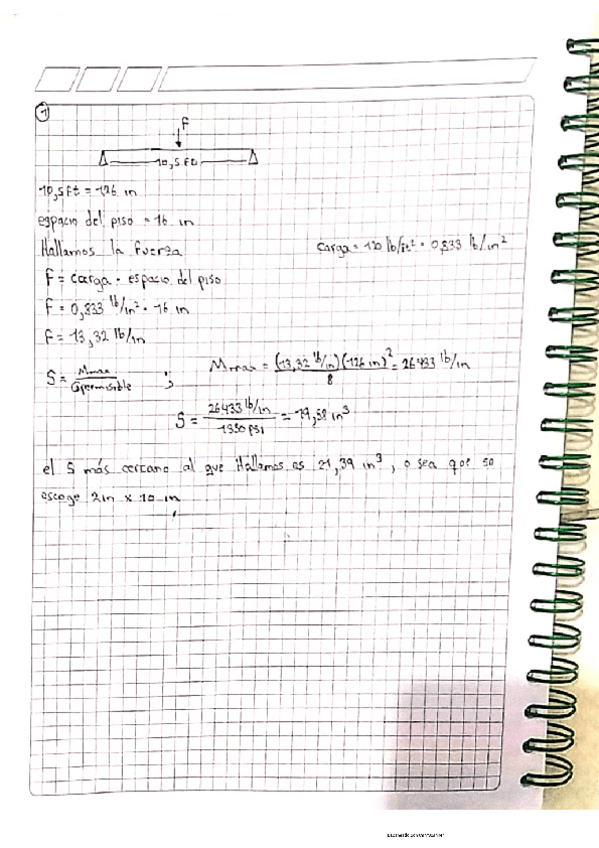 1
F
10,5ft
10,5ft = 126 in
espacio del piso = 16 in
Hallamos la fuerza
Carga = 120 lb/ft² = 0,833 lb/in²
F = carga · espacio del piso
F = 0,833 lb/in² · 16 in
F = 13,32 lb/in
S = Mmax / σpermisible ; Mmax = (13,32 lb/in)(126 in)² / 8 = 26433 lb/in
S = 26433 lb/in / 1350 psi = 19,58 in³
el S más cercano al que Hallamos es 21,39 in³, o sea que se
escoge 2in x 10 in